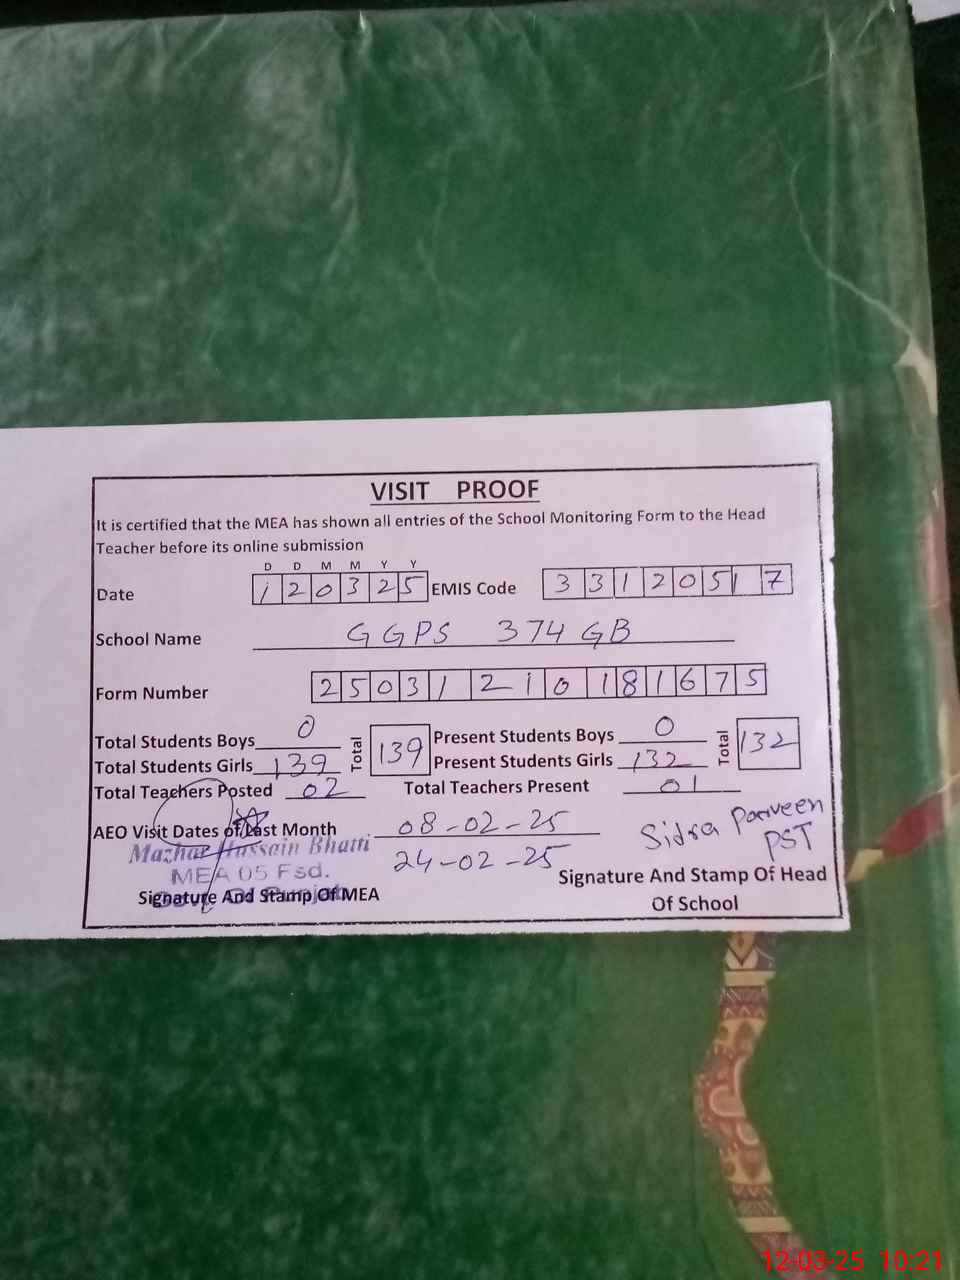 VISIT PROOF
It is certified that the MEA has shown all entries of the School Monitoring Form to the Head
Teacher before its online submission
D D M M Y Y
Date 1 2 0 3 2 5 EMIS Code 3 3 1 2 0 5 1 7
School Name GGPS 374 GB
Form Number 2 5 0 3 1 2 1 0 1 8 1 6 7 5
Total Students Boys 0 Total 139 Present Students Boys 0 Total 132
Total Students Girls 139 Present Students Girls 132
Total Teachers Posted 02 Total Teachers Present 01
AEO Visit Dates of Last Month 08-02-25
24-02-25
Sidra Parveen
PST
Mazhar Hussain Bhatti
MEA 05 Fsd.
Signature And Stamp Of MEA
Signature And Stamp Of Head
Of School
12-03-25 10:21